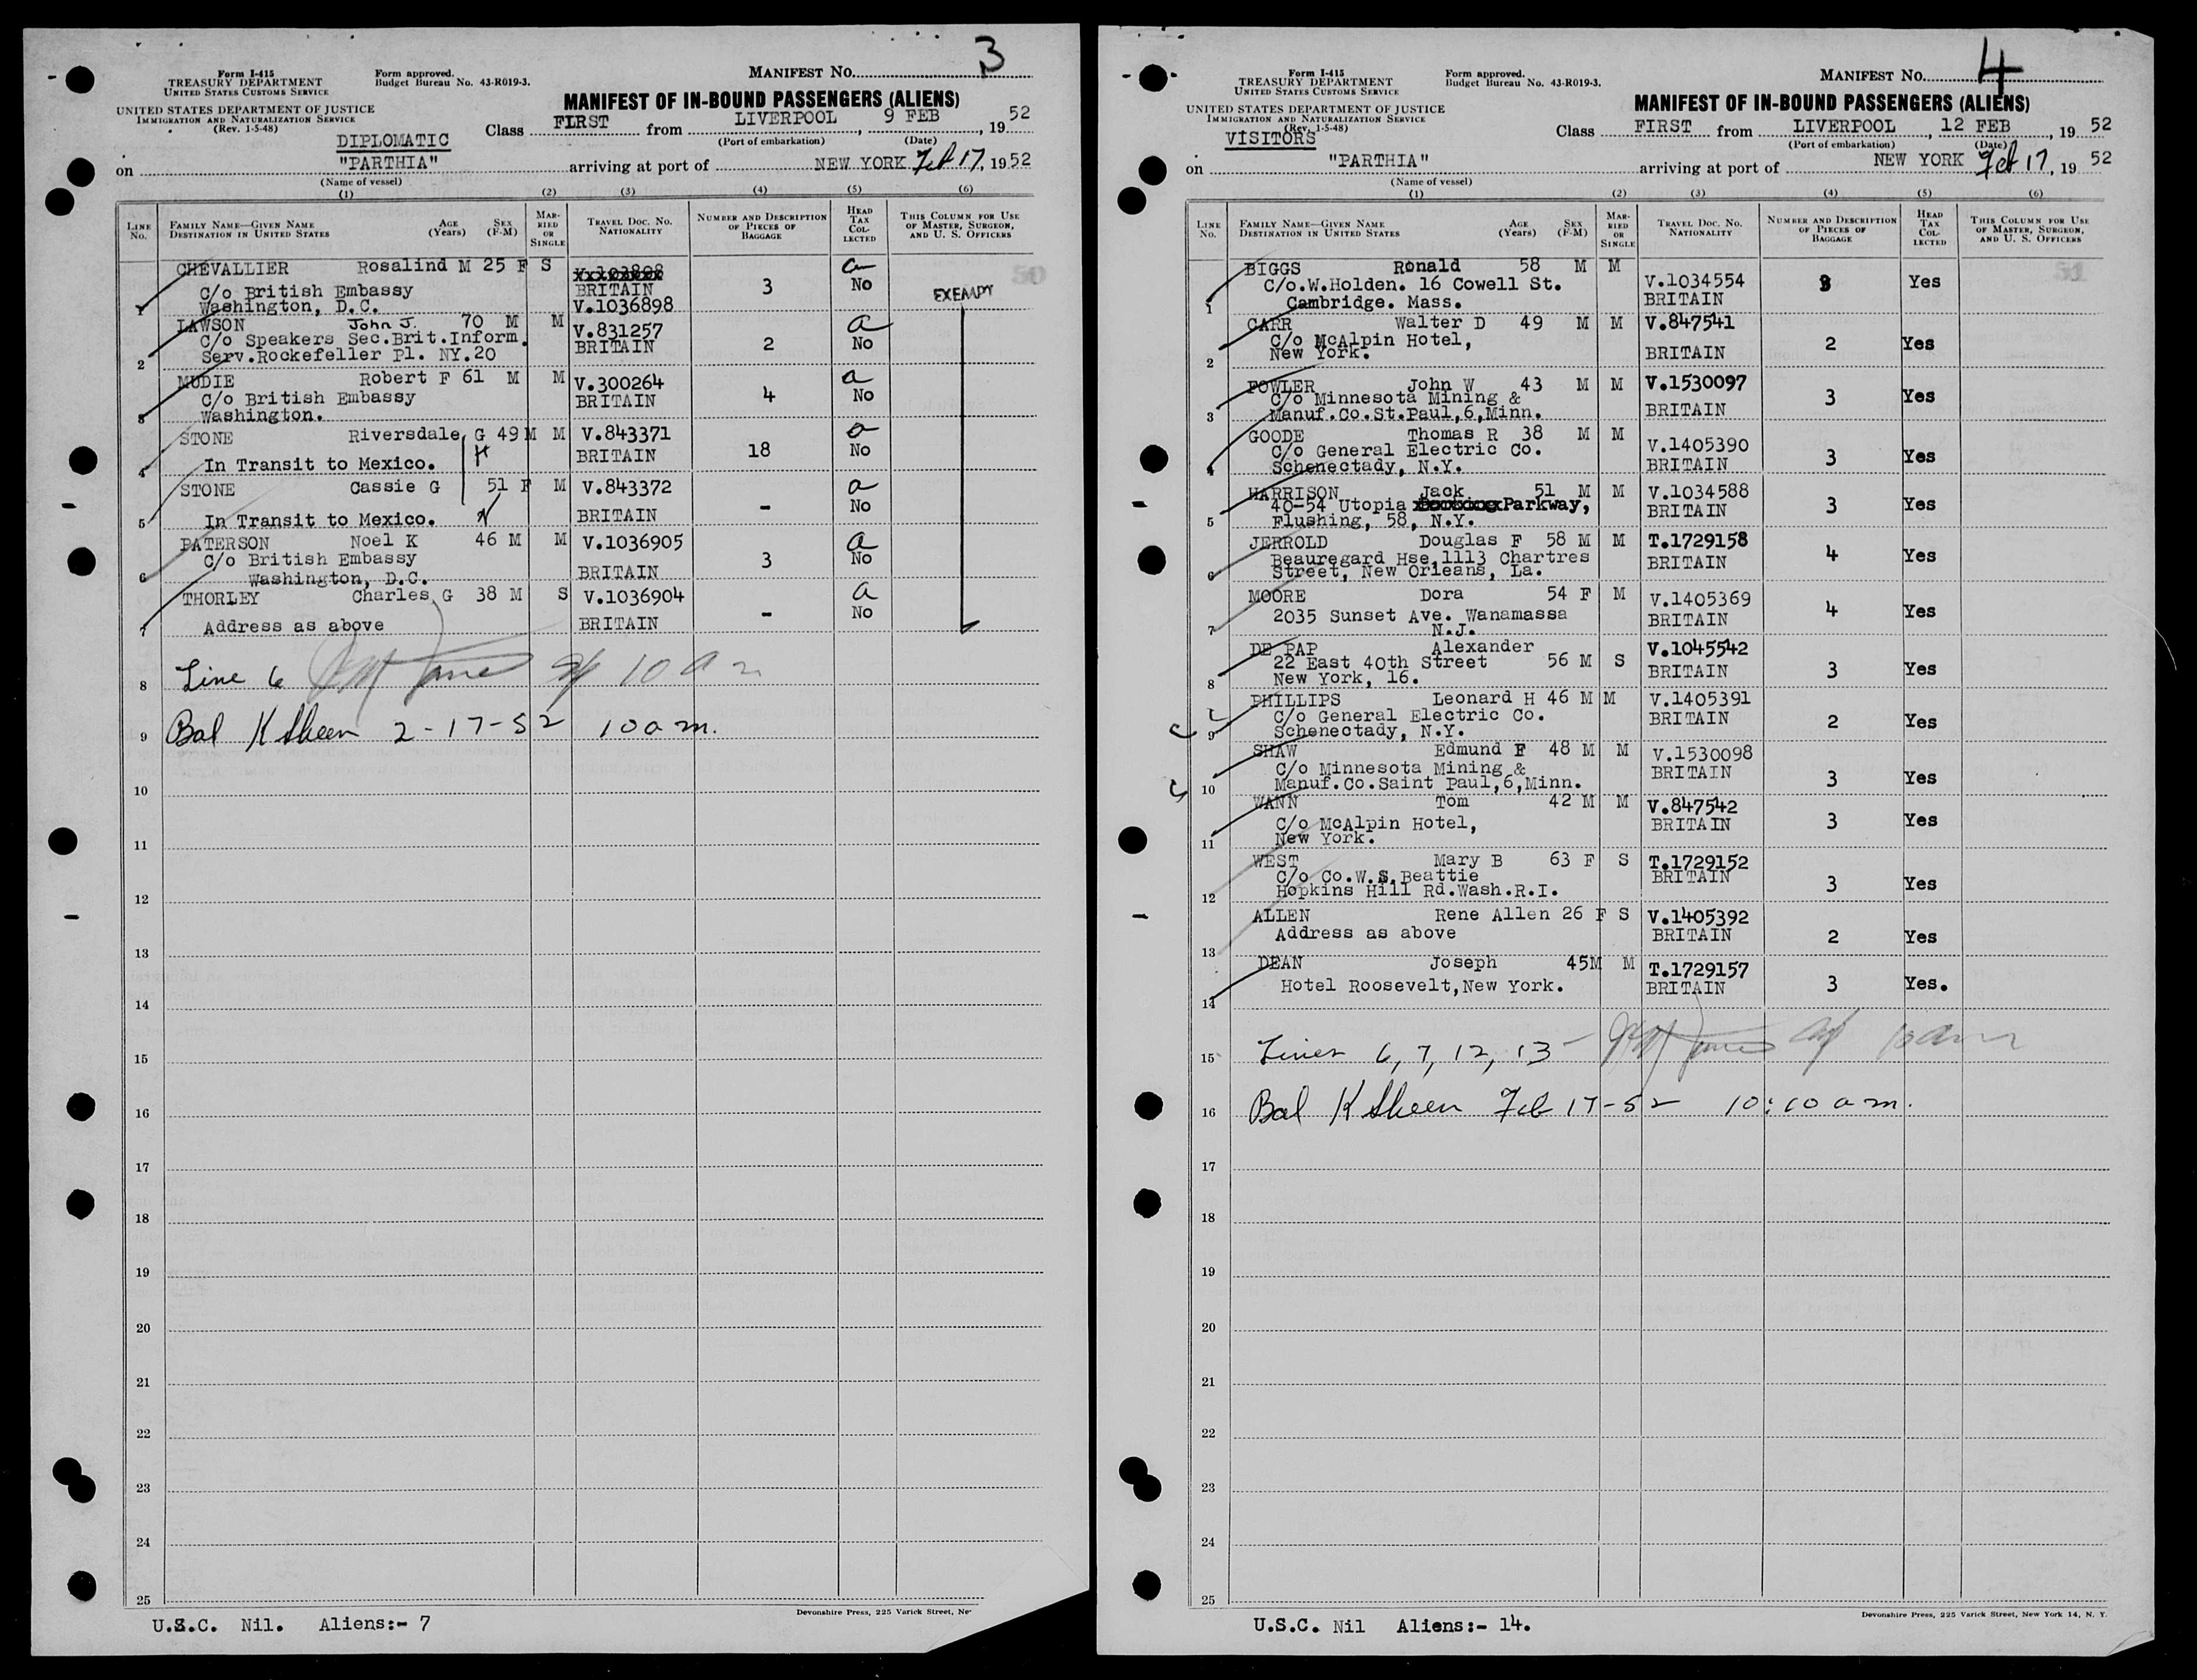 3
Form I-415
TREASURY DEPARTMENT
UNITED STATES CUSTOMS SERVICE
Form approved.
Budget Bureau No. 43-R019-3.
MANIFEST No.
UNITED STATES DEPARTMENT OF JUSTICE
IMMIGRATION AND NATURALIZATION SERVICE
(Rev. 1-5-48)
MANIFEST OF IN-BOUND PASSENGERS (ALIENS)
DIPLOMATIC
Class FIRST from LIVERPOOL, 9 FEB, 1952
(Port of embarkation) (Date)
on "PARTHIA" arriving at port of NEW YORK Feb 17, 1952
(Name of vessel)
(1) (2) (3) (4) (5) (6)
LINE No. FAMILY NAME—GIVEN NAME DESTINATION IN UNITED STATES AGE (Years) SEX (F-M) MARRIED OR SINGLE TRAVEL DOC. NO. NATIONALITY NUMBER AND DESCRIPTION OF PIECES OF BAGGAGE HEAD TAX COLLECTED THIS COLUMN FOR USE OF MASTER, SURGEON, AND U. S. OFFICERS
50
CHEVALLIER Rosalind M 25 F S
C/o British Embassy BRITAIN 3 No EXEMPT
1 Washington, D.C. V.1036898
LAWSON John J. 70 M M V.831257 a
C/o Speakers Sec.Brit.Inform. BRITAIN 2 No
2 Serv.Rockefeller Pl. NY.20
MUDIE Robert F 61 M M V.300264 a
C/o British Embassy BRITAIN 4 No
3 Washington.
STONE Riversdale G 49 M M V.843371 a
4 In Transit to Mexico. BRITAIN 18 No
STONE Cassie G 51 F M V.843372 a
5 In Transit to Mexico. BRITAIN - No
PATERSON Noel K 46 M M V.1036905 a
C/o British Embassy 3 No
6 Washington, D.C. BRITAIN
THORLEY Charles G 38 M S V.1036904 a
7 Address as above BRITAIN - No
8 Line 6 10 a m
9 Bal K Sheen 2-17-52 10 a m.
10
11
12
13
14
15
16
17
18
19
20
21
22
23
24
25
Devonshire Press, 225 Varick Street, Ne
U.S.C. Nil. Aliens:- 7
4
Form I-415
TREASURY DEPARTMENT
UNITED STATES CUSTOMS SERVICE
Form approved.
Budget Bureau No. 43-R019-3.
MANIFEST No.
UNITED STATES DEPARTMENT OF JUSTICE
IMMIGRATION AND NATURALIZATION SERVICE
(Rev. 1-5-48)
MANIFEST OF IN-BOUND PASSENGERS (ALIENS)
VISITORS
Class FIRST from LIVERPOOL, 12 FEB, 1952
(Port of embarkation) (Date)
on "PARTHIA" arriving at port of NEW YORK Feb 17, 1952
(Name of vessel)
(1) (2) (3) (4) (5) (6)
LINE No. FAMILY NAME—GIVEN NAME DESTINATION IN UNITED STATES AGE (Years) SEX (F-M) MARRIED OR SINGLE TRAVEL DOC. NO. NATIONALITY NUMBER AND DESCRIPTION OF PIECES OF BAGGAGE HEAD TAX COLLECTED THIS COLUMN FOR USE OF MASTER, SURGEON, AND U. S. OFFICERS
51
BIGGS Ronald 58 M M
C/o.W.Holden. 16 Cowell St. V.1034554 3 Yes
1 Cambridge. Mass. BRITAIN
CARR Walter D 49 M M V.847541
C/o McAlpin Hotel, 2 Yes
2 New York. BRITAIN
FOWLER John W 43 M M V.1530097
C/o Minnesota Mining & 3 Yes
3 Manuf.Co.St.Paul,6,Minn. BRITAIN
GOODE Thomas R 38 M M
C/o General Electric Co. V.1405390 3 Yes
4 Schenectady, N.Y. BRITAIN
HARRISON Jack 51 M M V.1034588
40-54 Utopia Parkway, BRITAIN 3 Yes
5 Flushing, 58, N.Y.
JERROLD Douglas F 58 M M T.1729158
Beauregard Hse,1113 Chartres BRITAIN 4 Yes
6 Street, New Orleans, La.
MOORE Dora 54 F M V.1405369
2035 Sunset Ave. Wanamassa BRITAIN 4 Yes
7 N.J.
DE PAP Alexander V.1045542
22 East 40th Street 56 M S BRITAIN 3 Yes
8 New York, 16.
PHILLIPS Leonard H 46 M M V.1405391
C/o General Electric Co. BRITAIN 2 Yes
9 Schenectady, N.Y.
SHAW Edmund F 48 M M V.1530098
C/o Minnesota Mining & BRITAIN 3 Yes
10 Manuf.Co.Saint Paul,6,Minn.
WANN Tom 42 M M V.847542
C/o McAlpin Hotel, BRITAIN 3 Yes
11 New York.
WEST Mary B 63 F S T.1729152
C/o Co.W.S.Beattie BRITAIN 3 Yes
12 Hopkins Hill Rd.Wash.R.I.
ALLEN Rene Allen 26 F S V.1405392
Address as above BRITAIN 2 Yes
13
DEAN Joseph 45M M T.1729157
Hotel Roosevelt,New York. BRITAIN 3 Yes.
14
15 Lines 6, 7, 12, 13 - 10 a m
16 Bal K Sheen Feb 17-52 10:10 a m.
17
18
19
20
21
22
23
24
25
Devonshire Press, 225 Varick Street, New York 14, N. Y.
U.S.C. Nil Aliens:- 14.